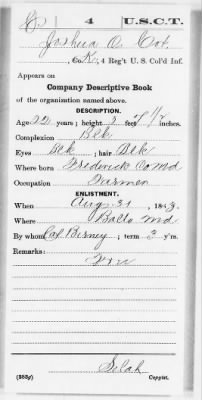 C | 4 | U.S.C.T.
Joshua A. Cox
, Co. K, 4 Reg't U. S. Col'd Inf.
Appears on
Company Descriptive Book
of the organization named above.
DESCRIPTION.
Age 22 years; height 5 feet 7 1/2 inches.
Complexion Blk
Eyes Blk; hair Blk
Where born Frederick Co Md
Occupation Farmer
ENLISTMENT.
When Aug 31, 1863.
Where Balto Md
By whom Col Birney; term 3 y'rs.
Remarks:
Free
Selah
(383g) Copyist.